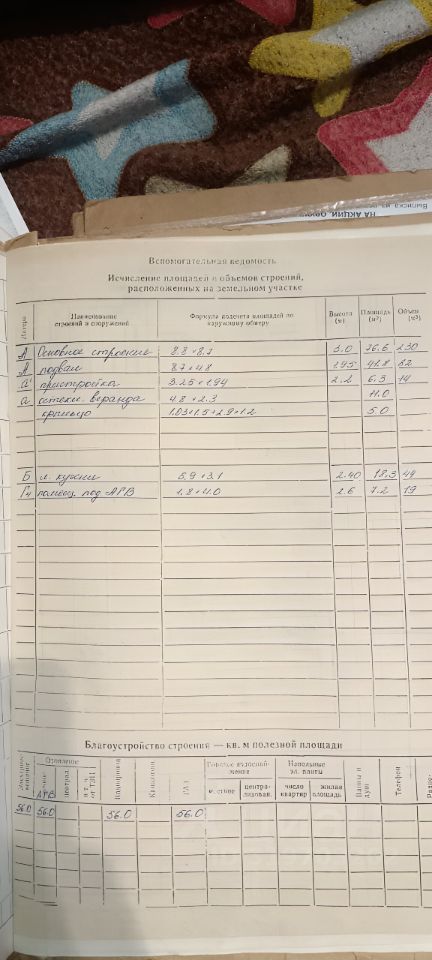 НА АКЦИИ, 
Выписка из
Вспомогательная ведомость
Исчисление площадей и объемов строений,
расположенных на земельном участке
Литера
Наименование строений и сооружений
Формула подсчета площадей по наружному обмеру
Высота (м)
Площадь (м²)
Объем (м³)
А Основное строение 8.8×8.7 3.0 76.6 230
А подвал 8.7×4.8 1.95 41.8 82
а' пристройка 3.25×1.94 2.2 6.3 14
а остекл. веранда 4.8×2.3 11.0
крыльцо 1.03×1.5+2.9×1.2 5.0
Б л. кухня 5.9×3.1 2.40 18.3 44
Г4 помещ. под АГВ 1.8×4.0 2.6 7.2 19
Благоустройство строения — кв. м полезной площади
Отопление
АГВ
централ.
в т. ч. от ТЭЦ
Водопровод
Канализац.
ГАЗ
Горячее водоснабжение
централизован.
Напольные эл. плиты
число квартир
жилая площадь
Ванны и душ
Телефон
Радио
56.0 56.0 56.0 56.0